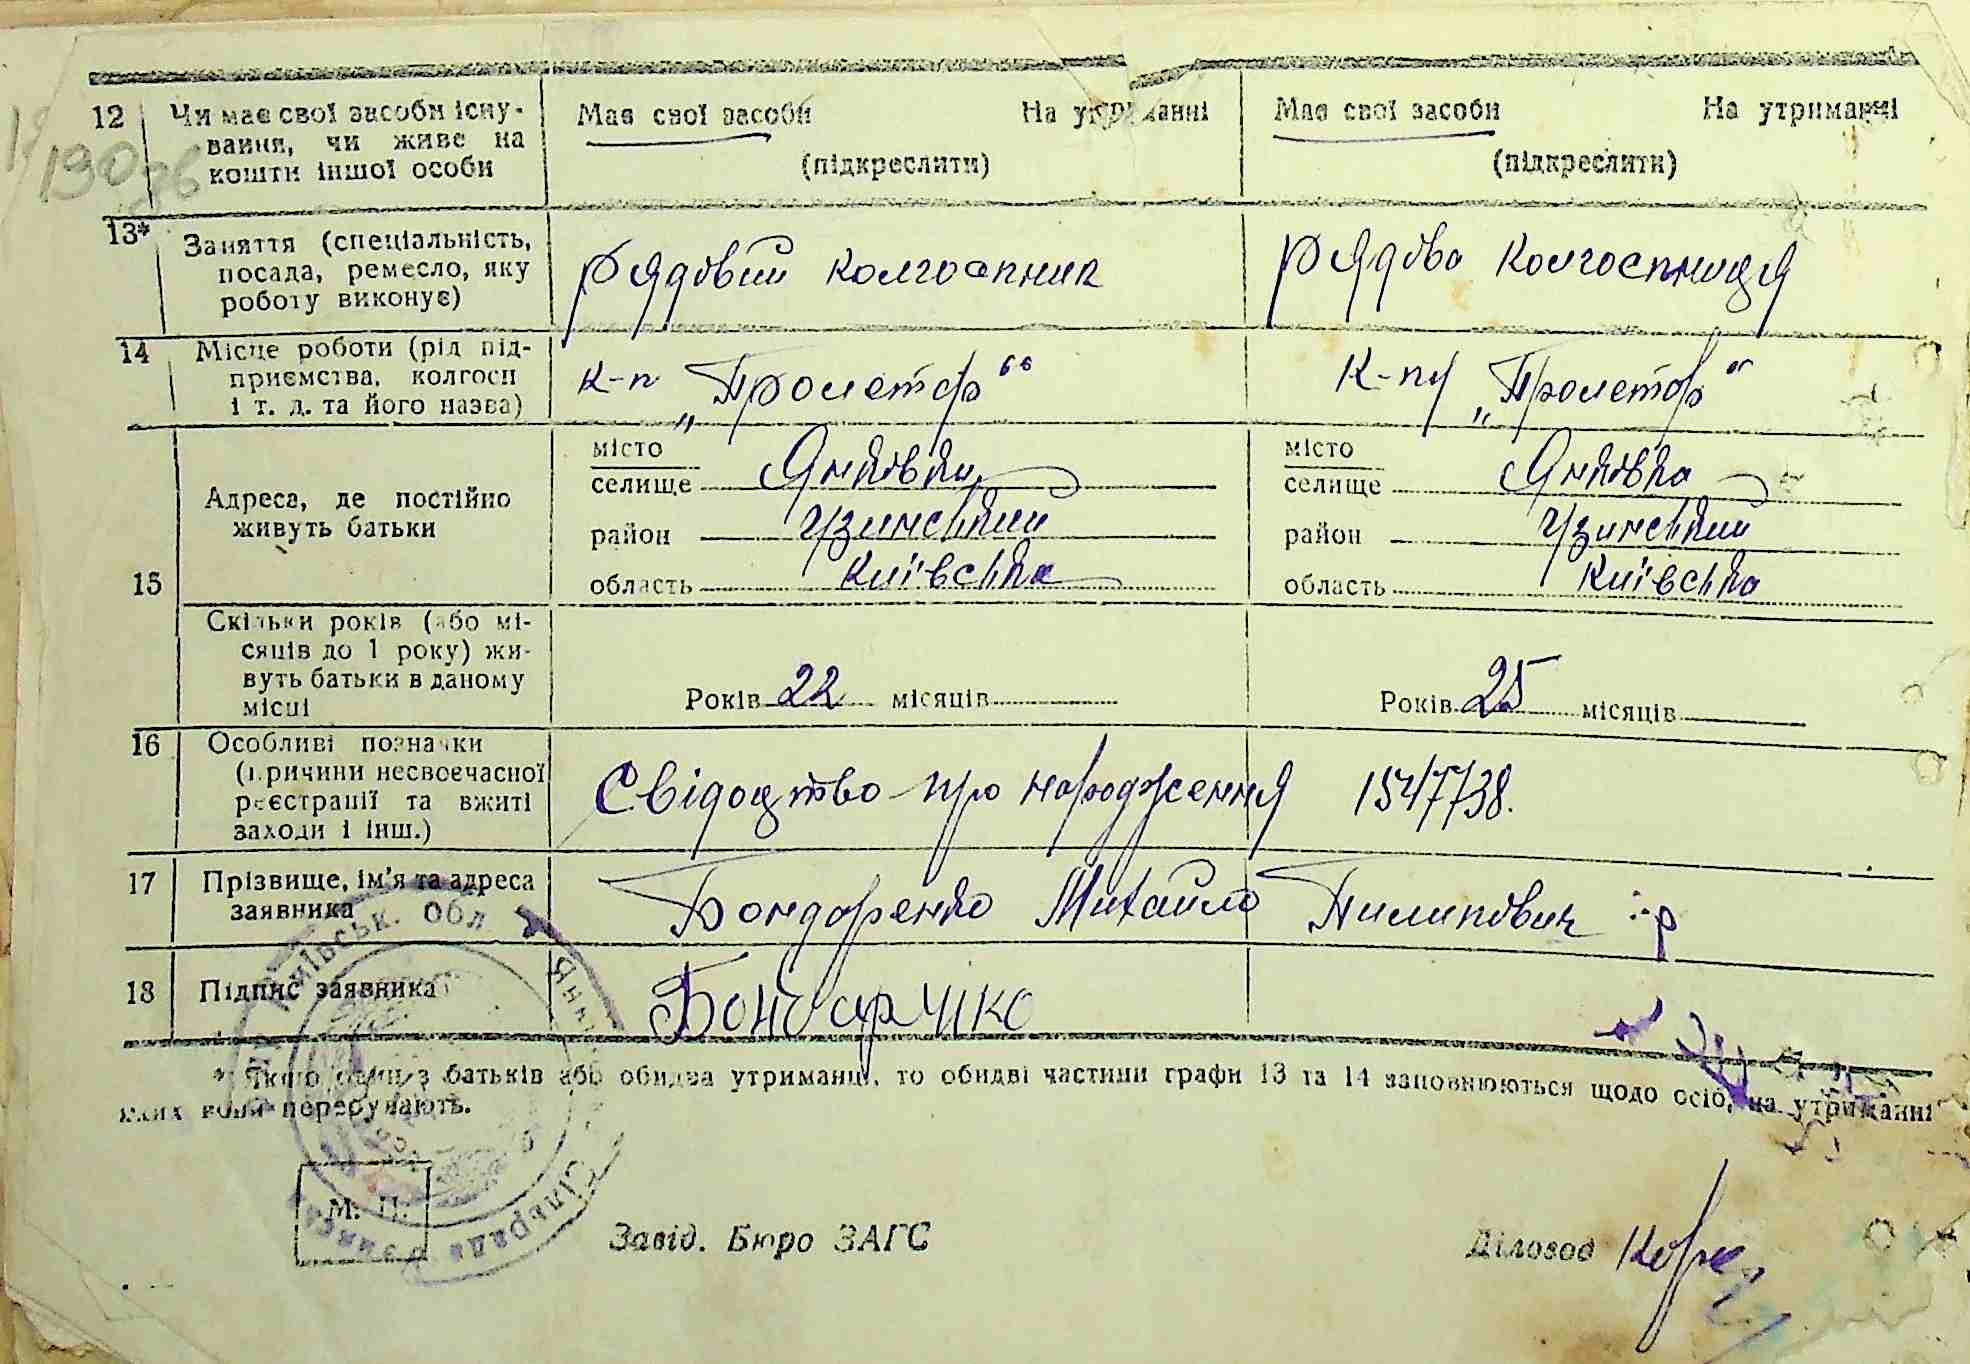 12 Чи має свої засоби існу- Має свої засоби На утриманні Має свої засоби На утриманні
вання, чи живе на
кошти іншої особи (підкреслити) (підкреслити)
190
13* Заняття (спеціальність,
посада, ремесло, яку рядовий колгоспник рядова колгоспниця
роботу виконує)
14 Місце роботи (рід під-
приємства, колгосп к-п „Пролетар“ К-пу „Пролетар“
і т. д. та його назва)
15 Адреса, де постійно
живуть батьки
місто місто
селище Янківка селище Янківка
район Узинський район Узинський
область Київська область Київська
Скільки років (або мі-
сяців до 1 року) жи-
вуть батьки в даному Років 22 місяців Років 25 місяців
місці
16 Особливі позначки
(причини несвоєчасної Свідоцтво про народження 154/7738.
реєстрації та вжиті
заходи і інш.)
17 Прізвище, ім'я та адреса Бондаренко Михайло Пилипович
заявника
18 Підпис заявника Бондаренко
* Якщо один з батьків або обидва утриманці, то обидві частини графи 13 та 14 заповнюються щодо осіб, на утриманні
яких вони перебувають.
Київськ. Обл
Сільрада
М. П.
Завід. Бюро ЗАГС Діловод